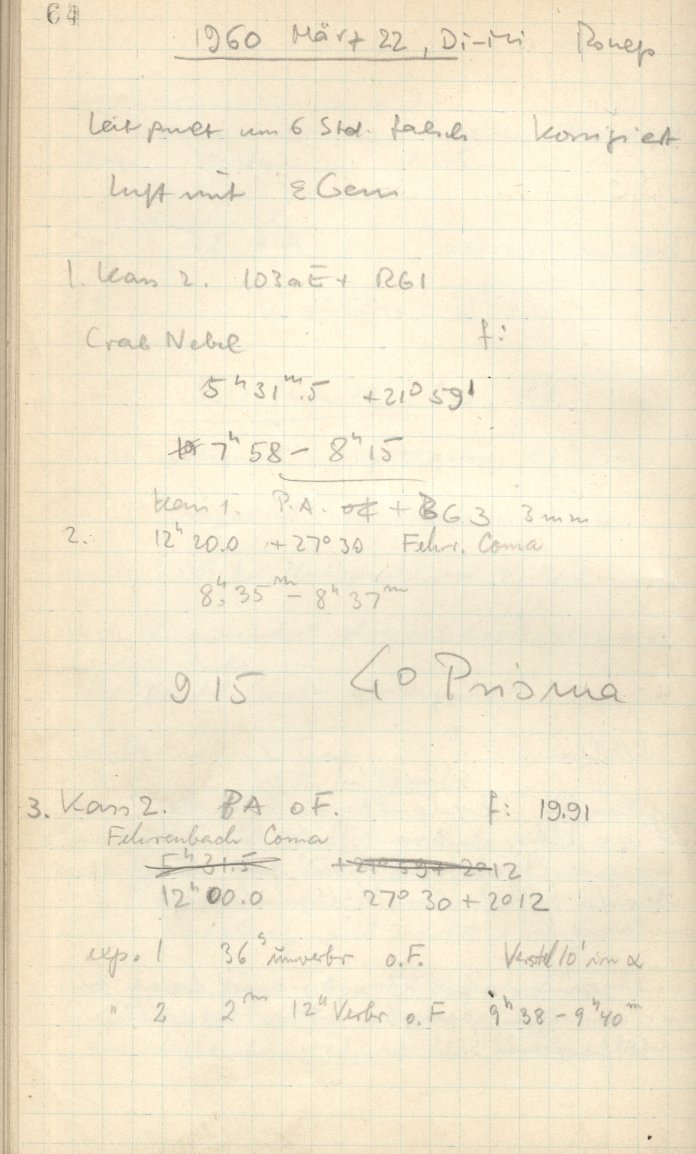 64
1960 März 22, Di-Mi
Leitpult um 6 Std. falsch korrigiert
Luft mit ε Gem
1. Kass 2. 103aE + RG1
Crab Nebel f:
5h 31m.5 +21° 59'
7h 58 – 8h 15
Kass 1. P.A. oF + BG3 3mm
2. 12h 20.0 +27° 30 Fehr. Coma
8h 35m – 8h 37m
9 15 4° Prisma
3. Kass 2. PA oF. f: 19.91
Fehrenbach Coma
5h 31.5 +21° 59 + 2°12
12h 00.0 27° 30 + 2°12
exp. 1 36s unverbr o.F. Verstel 10' in α
" 2 2m 12s Verbr o.F 9h 38 – 9h 40m